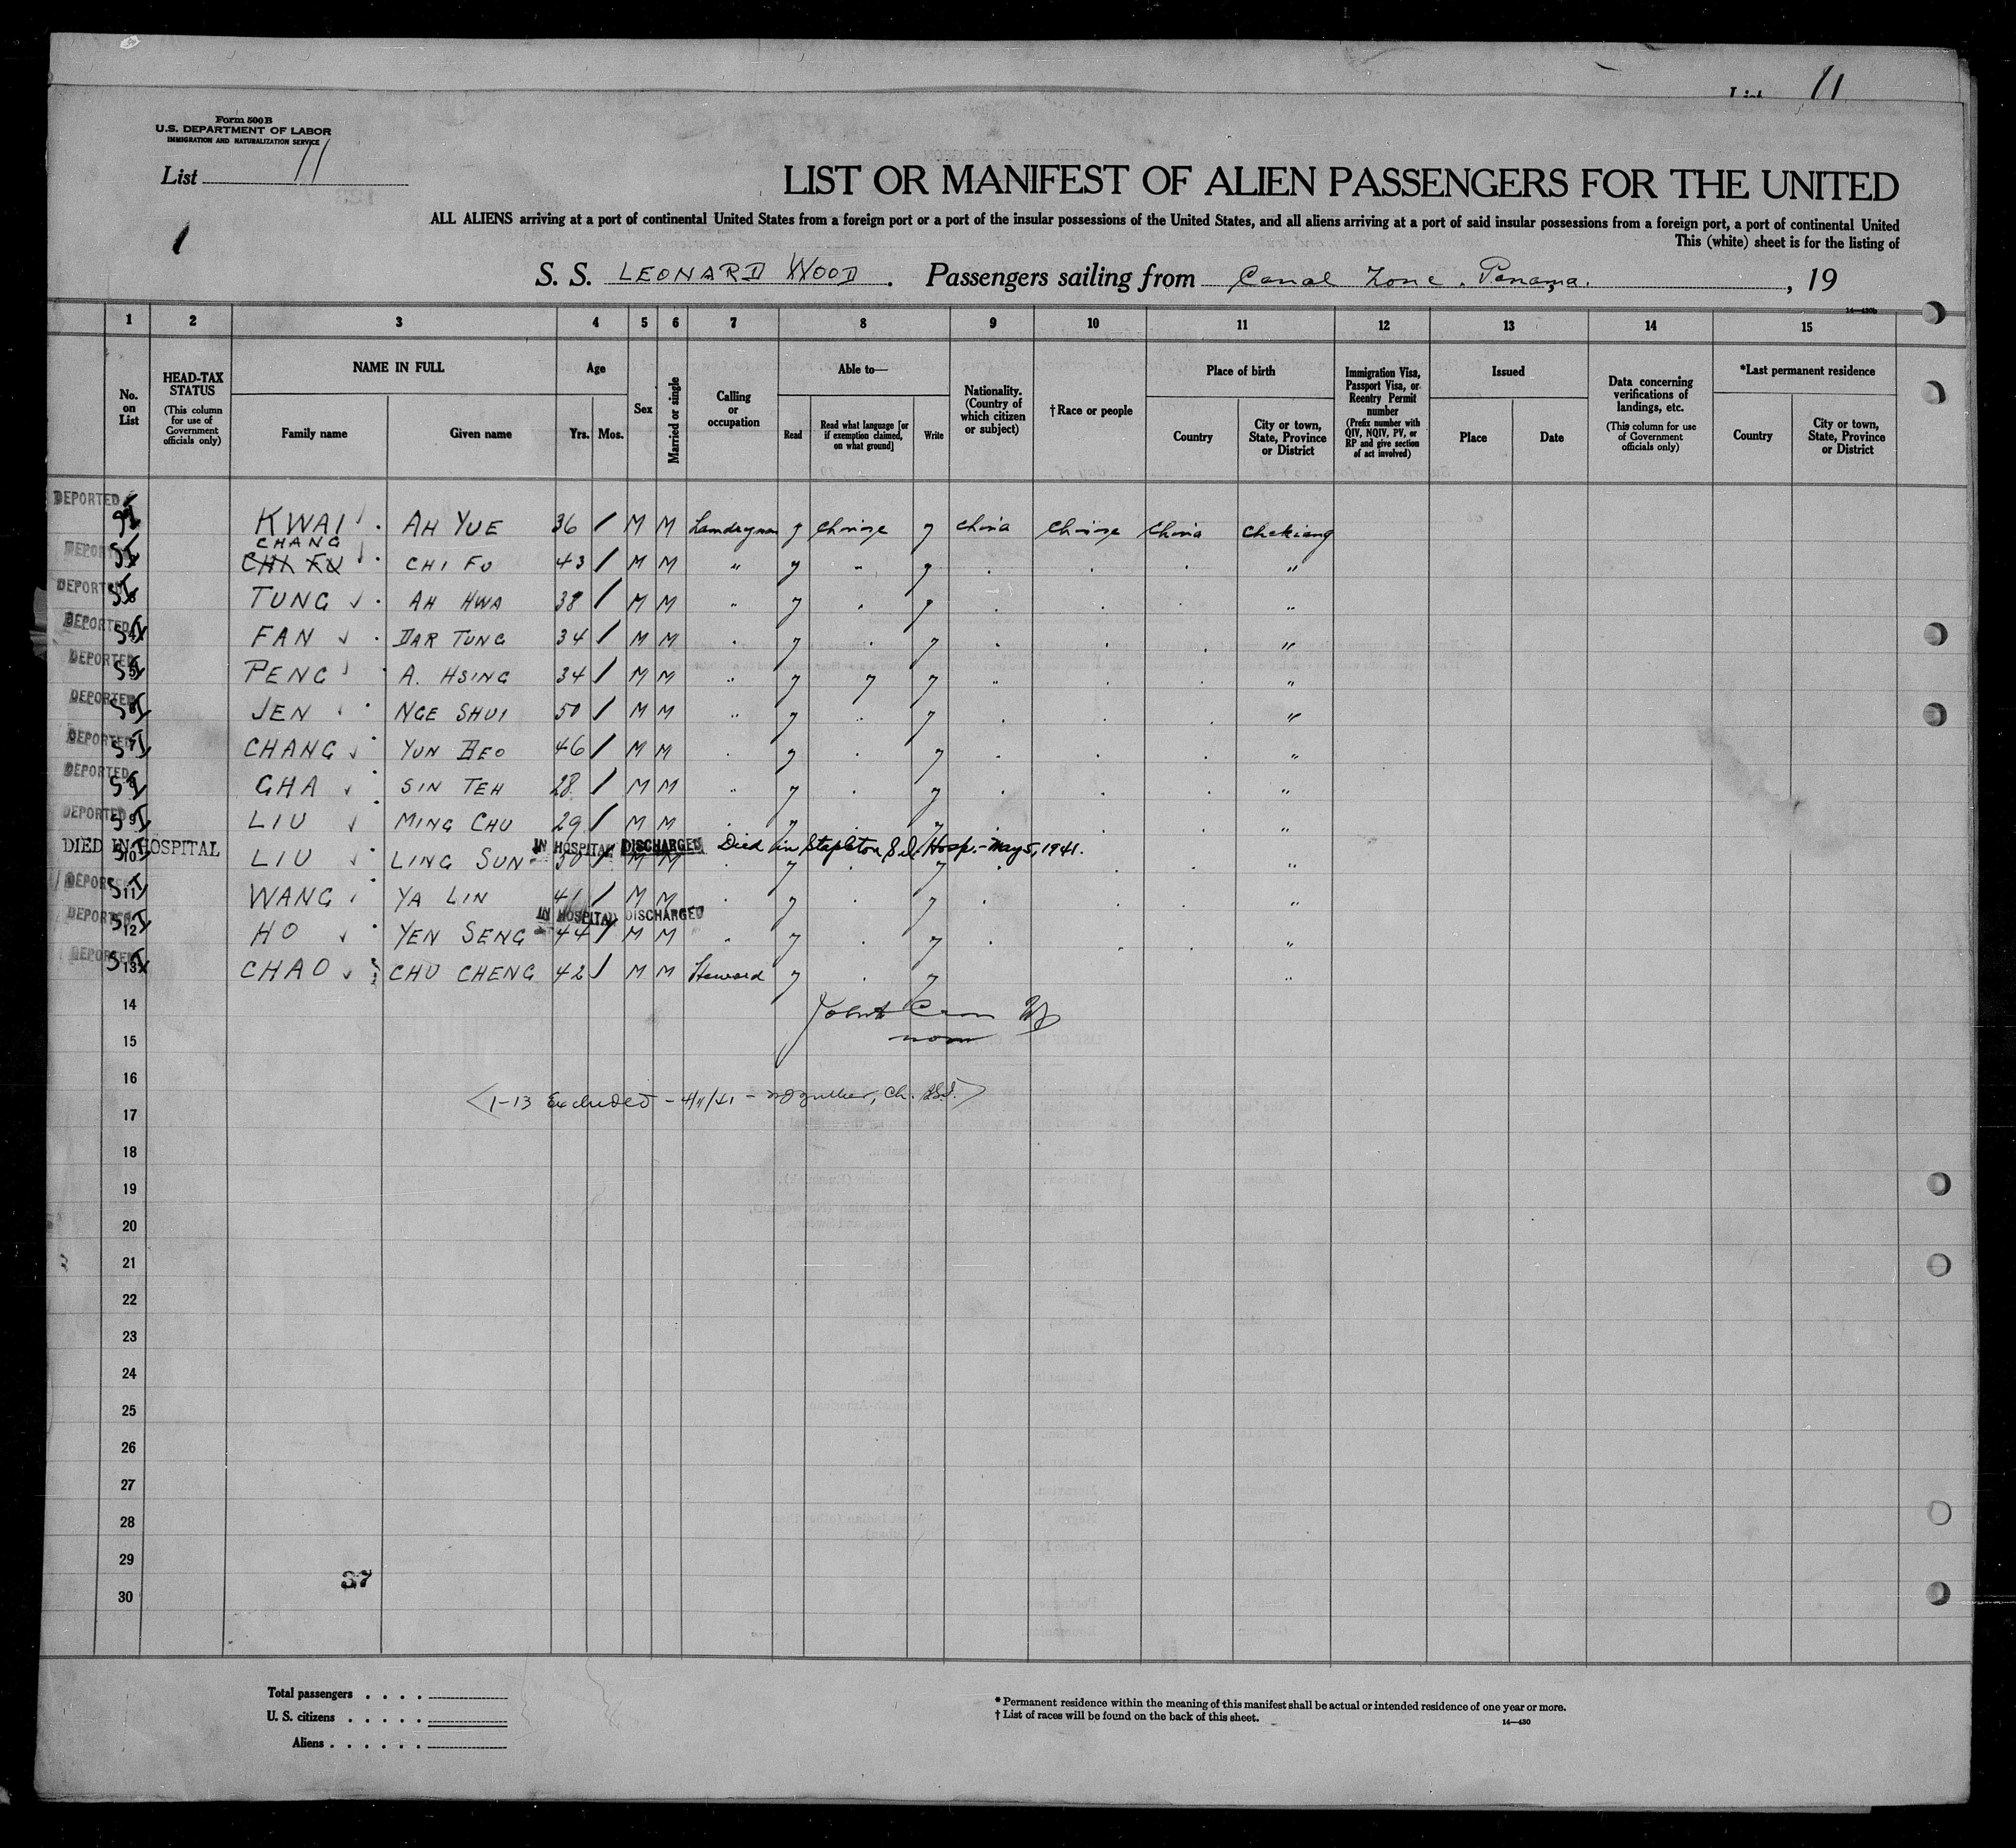 List 11
Form 500 B
U.S. DEPARTMENT OF LABOR
IMMIGRATION AND NATURALIZATION SERVICE
List 11
1
LIST OR MANIFEST OF ALIEN PASSENGERS FOR THE UNITED
ALL ALIENS arriving at a port of continental United States from a foreign port or a port of the insular possessions of the United States, and all aliens arriving at a port of said insular possessions from a foreign port, a port of continental United
This (white) sheet is for the listing of
S. S. LEONARD WOOD . Passengers sailing from Canal Zone. Panama. , 19
14—430b
1 2 3 4 5 6 7 8 9 10 11 12 13 14 15
No. on List
HEAD-TAX STATUS (This column for use of Government officials only)
NAME IN FULL
Family name Given name
Age
Yrs. Mos.
Sex
Married or single
Calling or occupation
Able to—
Read Read what language [or if exemption claimed, on what ground] Write
Nationality. (Country of which citizen or subject)
†Race or people
Place of birth
Country City or town, State, Province or District
Immigration Visa, Passport Visa, or Reentry Permit number (Prefix number with QIV, NQIV, PV, or RP and give section of act involved)
Issued
Place Date
Data concerning verifications of landings, etc. (This column for use of Government officials only)
*Last permanent residence
Country City or town, State, Province or District
DEPORTED
KWAI AH YUE 36 M M Laundryman y Chinese y China Chinese China Chekiang
CHANG
DEPORTED CHI FU CHI FU 43 M M " y " y "
DEPORTED TUNG AH HWA 38 M M " y y "
DEPORTED 4 FAN DAR TUNG 34 M M y y "
DEPORTED 5 PENG A. HSING 34 M M " y y y " "
DEPORTED JEN NGE SHUI 50 M M " y " y "
DEPORTED 7 CHANG YUN BEO 46 M M y y "
DEPORTED GHA SIN TEH 28 M M " y y "
DEPORTED 9 LIU MING CHU 29 M M y y "
DIED IN HOSPITAL IN HOSPITAL DISCHARGED Died in Stapleton S.I. Hosp. - May 5, 1941.
10 LIU LING SUN 30 M M y y "
DEPORTED 11 WANG YA LIN 41 M M y y "
IN HOSPITAL DISCHARGED
DEPORTED 12 HO YEN SENG 44 M M " y y "
DEPORTED 13 CHAO CHU CHENG 42 M M Steward y y "
14
15
16
1-13 Excluded - 4/11/41 - Ch.
17
18
19
20
21
22
23
24
25
26
27
28
29
37
30
Total passengers . . . .
U. S. citizens . . . . .
Aliens . . . . . .
* Permanent residence within the meaning of this manifest shall be actual or intended residence of one year or more.
† List of races will be found on the back of this sheet.
14—430